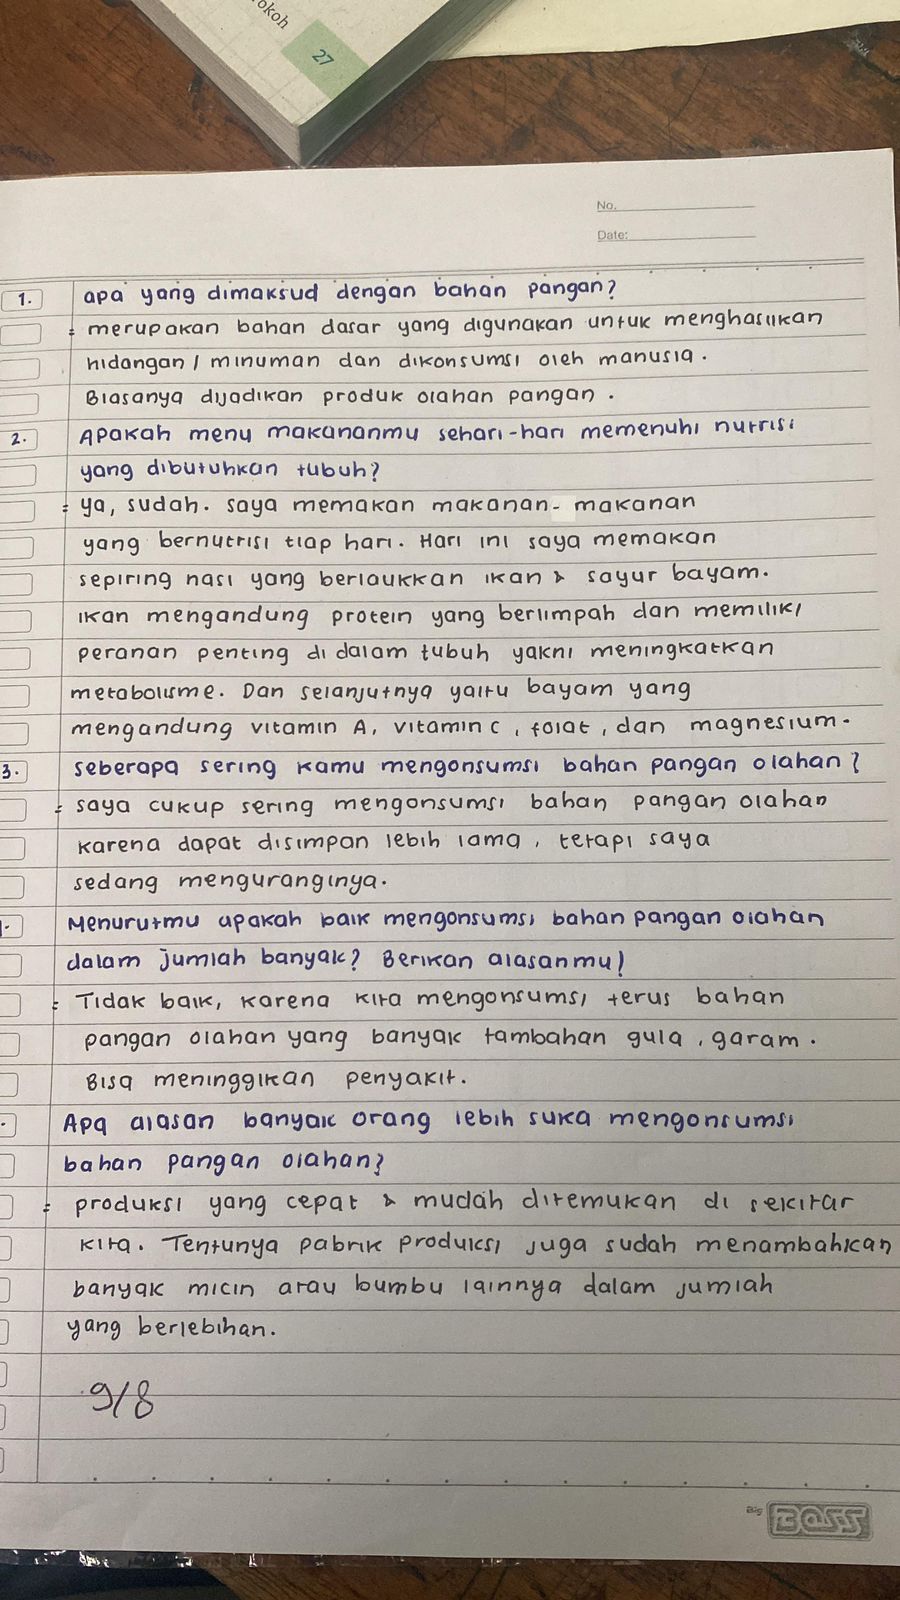 okoh
27
No.
Date:
1. apa yang dimaksud dengan bahan pangan?
= merupakan bahan dasar yang digunakan untuk menghasilkan
hidangan / minuman dan dikonsumsi oleh manusia.
Biasanya dijadikan produk olahan pangan.
2. Apakah menu makananmu sehari-hari memenuhi nutrisi
yang dibutuhkan tubuh?
= ya, sudah. saya memakan makanan-makanan
yang bernutrisi tiap hari. Hari ini saya memakan
sepiring nasi yang berlaukkan ikan & sayur bayam.
ikan mengandung protein yang berlimpah dan memiliki
peranan penting di dalam tubuh yakni meningkatkan
metabolisme. Dan selanjutnya yaitu bayam yang
mengandung vitamin A, vitamin C, folat, dan magnesium.
3. seberapa sering kamu mengonsumsi bahan pangan olahan?
= saya cukup sering mengonsumsi bahan pangan olahan
karena dapat disimpan lebih lama, tetapi saya
sedang menguranginya.
Menurutmu apakah baik mengonsumsi bahan pangan olahan
dalam jumlah banyak? Berikan alasanmu!
= Tidak baik, karena kita mengonsumsi terus bahan
pangan olahan yang banyak tambahan gula, garam.
Bisa meninggikan penyakit.
Apa alasan banyak orang lebih suka mengonsumsi
bahan pangan olahan?
= produksi yang cepat & mudah ditemukan di sekitar
kita. Tentunya pabrik produksi juga sudah menambahkan
banyak micin atau bumbu lainnya dalam jumlah
yang berlebihan.
9/8
Big BOSS